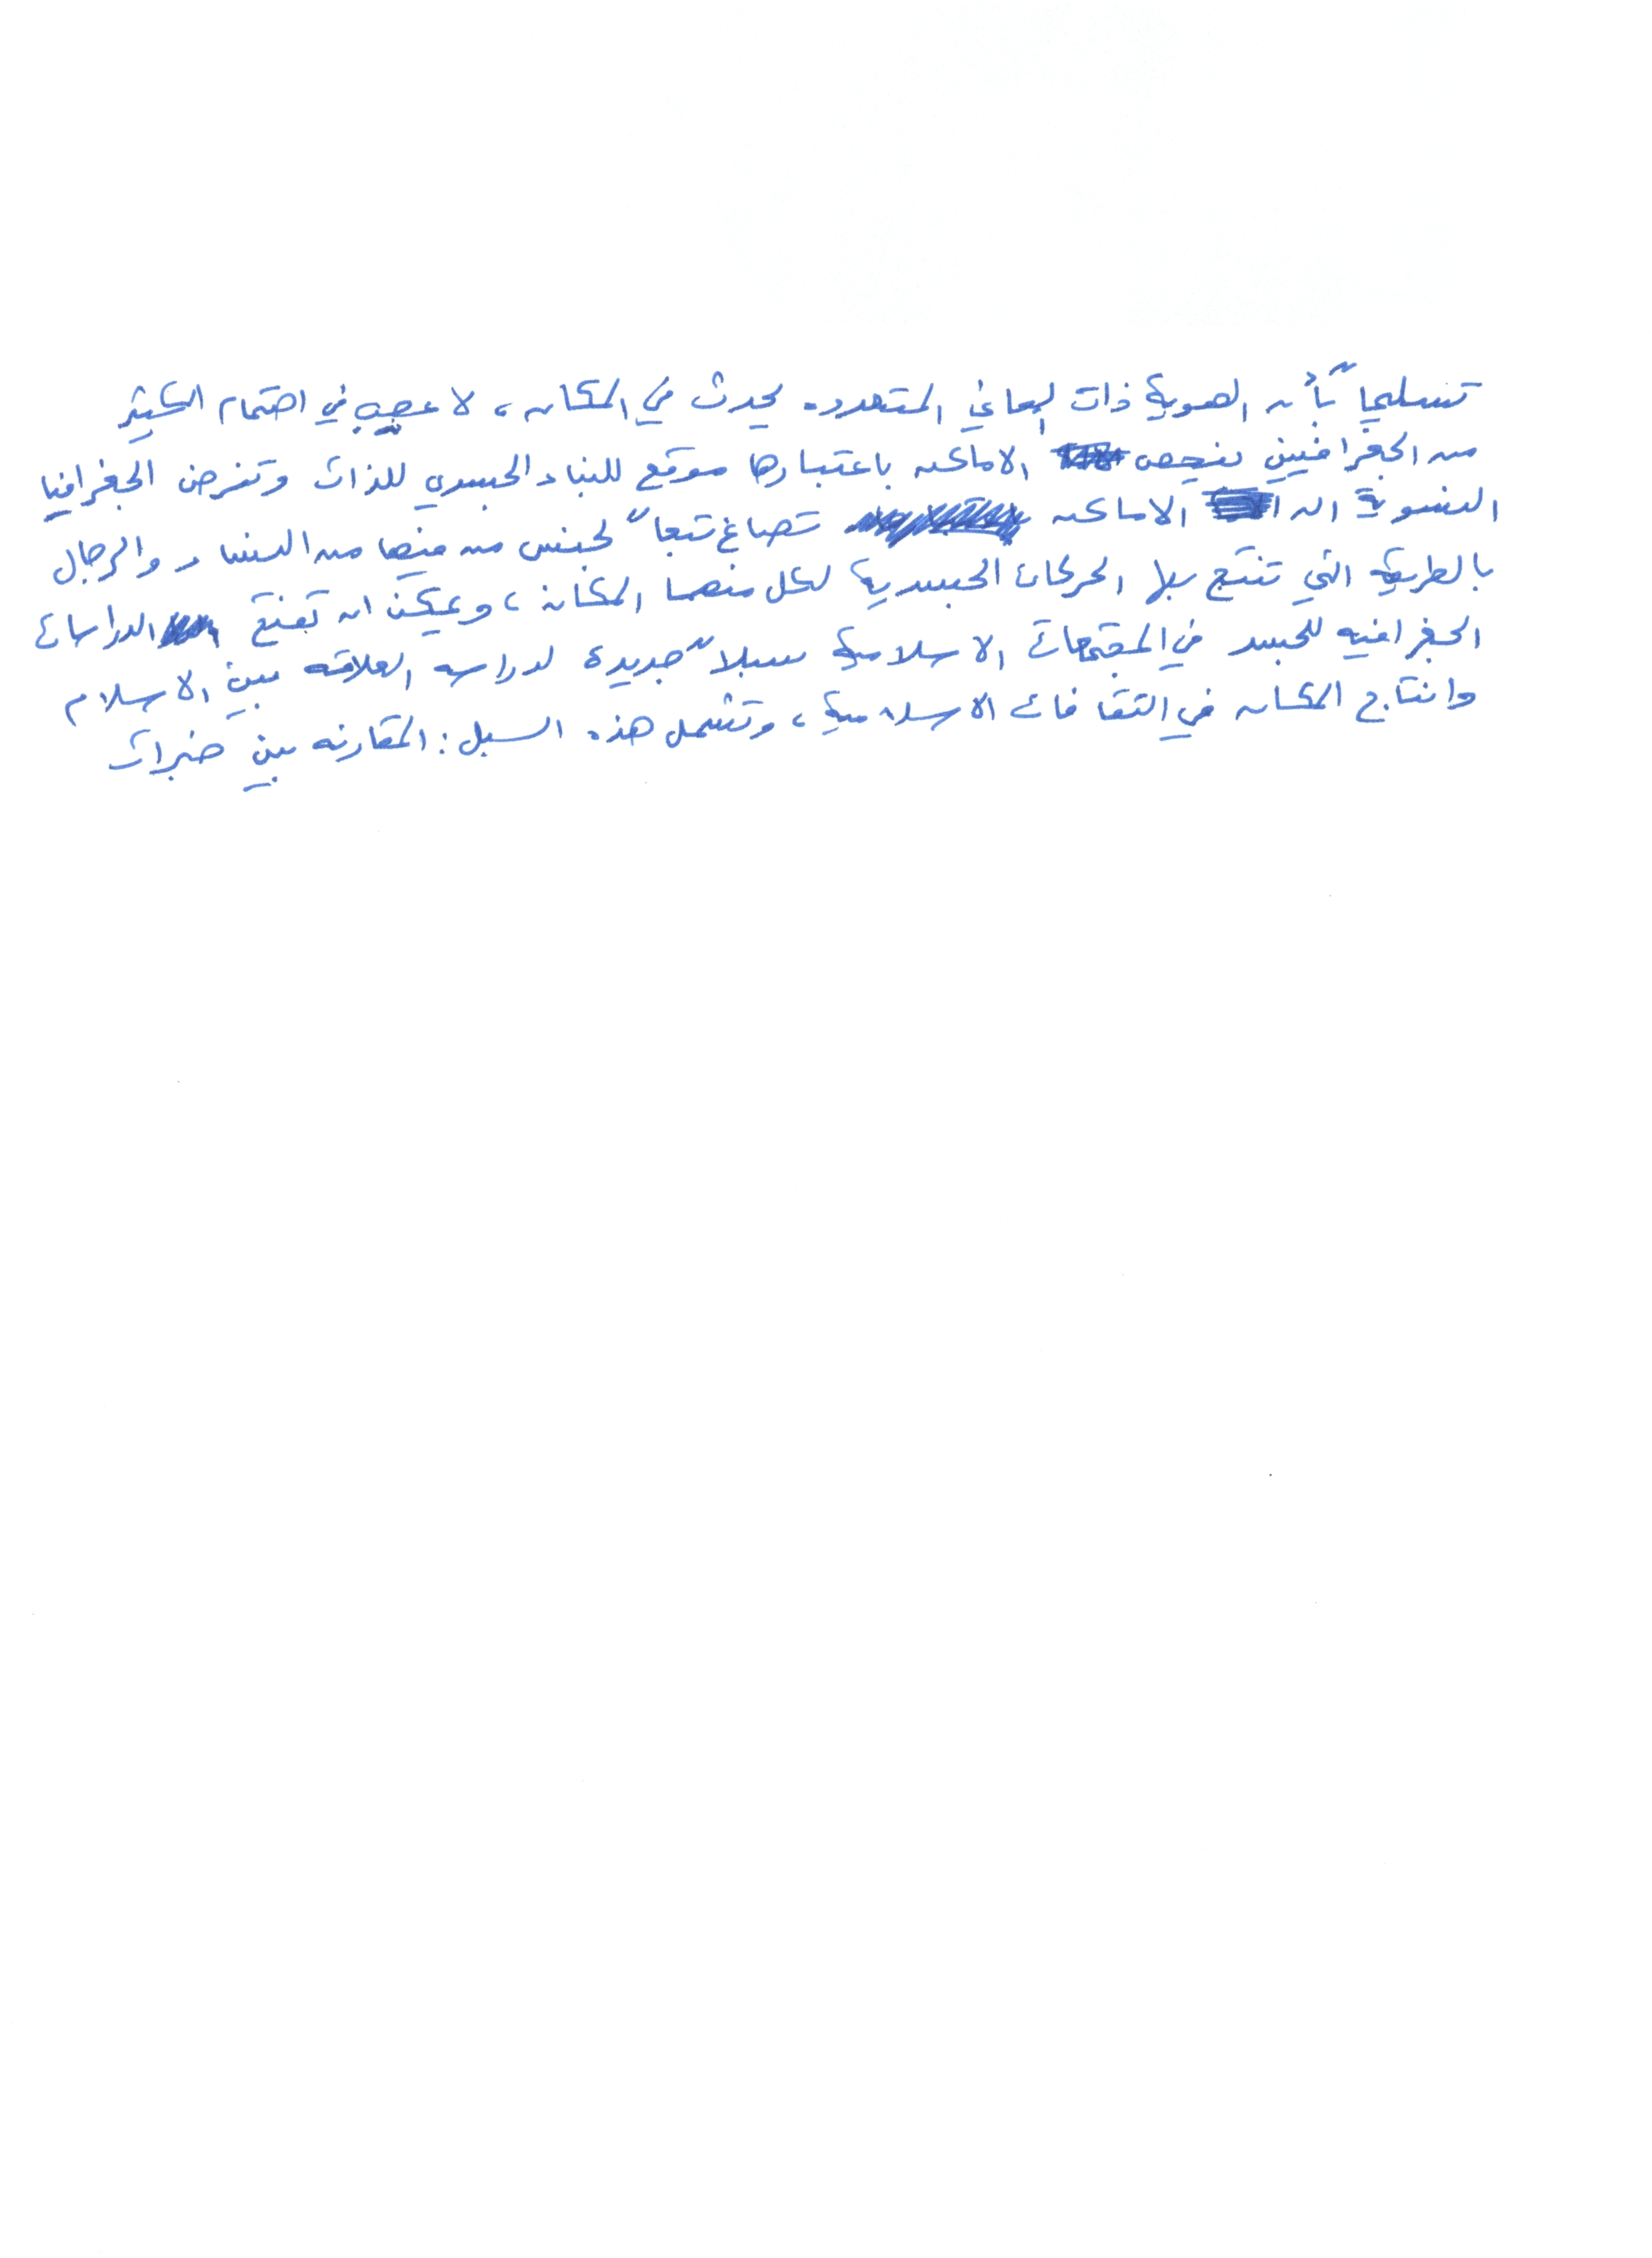 تسليماً بأن الهوية ذات المعاني المتعدده يحدث في المكان، لا عجب في اهتمام الكثير
من الجغرافيين بفحص الاماكن باعتبارها موقع للبناء الجسدي للذات وتفرض الجغرافيا
النسوية ان الاماكن تصاغ تبعاً لجنس من فيها من النساء والرجال
بالطريقة التي تنتج بها الحركات الجسدية لكل منهما المكانة، ويمكن ان تفتح الدراسات
الجغرافيه للجسد في المجتمعات الاسلامية سبلاً جديدة لدراسه العلاقه بين الاسلام
وانتاج المكان في الثقافات الاسلامية، وتشمل هذه السبل: المقارنه بين خبرات